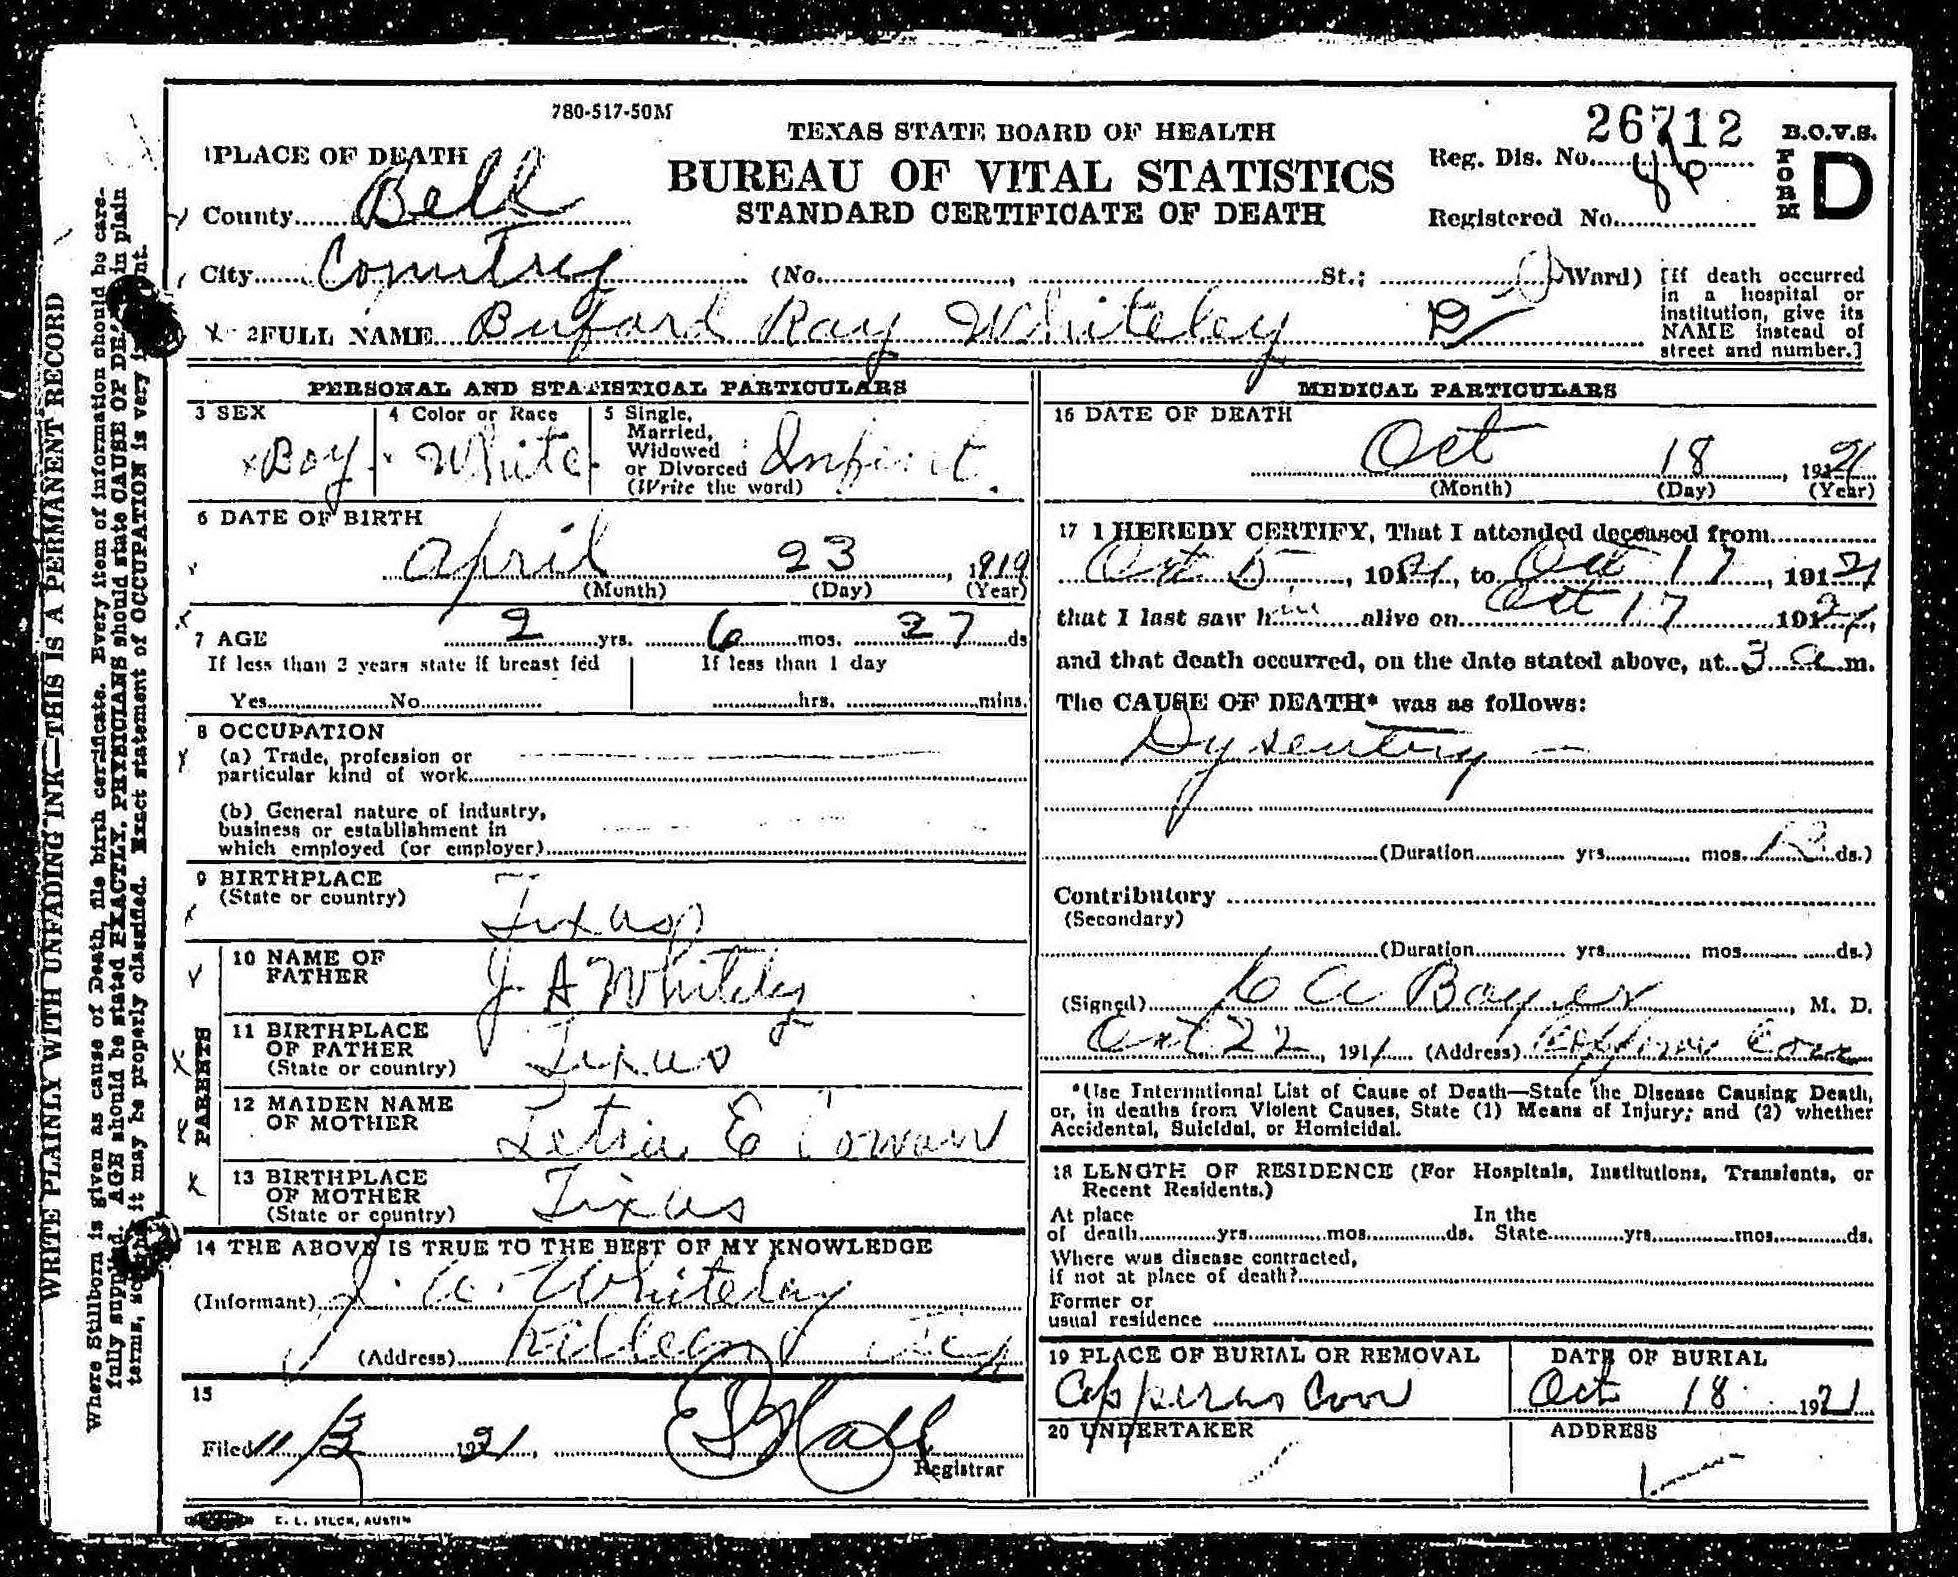 780-517-50M
TEXAS STATE BOARD OF HEALTH
BUREAU OF VITAL STATISTICS
STANDARD CERTIFICATE OF DEATH
26712
Reg. Dis. No.
Registered No.
B.O.V.S.
FORM D
1 PLACE OF DEATH
County Bell
City Country (No. , St.; Ward)
[If death occurred in a hospital or institution, give its NAME instead of street and number.]
2 FULL NAME Buford Ray Whiteley
WRITE PLAINLY WITH UNFADING INK—THIS IS A PERMANENT RECORD
Where Stillborn is given as cause of Death, file birth cerificate. Every item of information should be care-
fully supplied. AGE should be stated EXACTLY. PHYSICIANS should state CAUSE OF DEATH in plain
terms, so that it may be properly classified. Exact statement of OCCUPATION is very
PERSONAL AND STATISTICAL PARTICULARS
3 SEX Boy
4 Color or Race White
5 Single, Married, Widowed or Divorced (Write the word) Infint.
6 DATE OF BIRTH
April 23, 1919
(Month) (Day) (Year)
7 AGE 2 yrs. 6 mos. 27 ds
If less than 2 years state if breast fed
Yes No
If less than 1 day
hrs. mins.
8 OCCUPATION
(a) Trade, profession or
particular kind of work
(b) General nature of industry,
business or establishment in
which employed (or employer)
9 BIRTHPLACE
(State or country) Texas
PARENTS
10 NAME OF FATHER J A Whiteley
11 BIRTHPLACE OF FATHER (State or country) Texas
12 MAIDEN NAME OF MOTHER Letria E Cowan
13 BIRTHPLACE OF MOTHER (State or country) Texas
14 THE ABOVE IS TRUE TO THE BEST OF MY KNOWLEDGE
(Informant) J. A. Whiteley
(Address) Killeen Tex
15
Filed 11/3 1921, Hall
Registrar
E. L. STECK, AUSTIN
MEDICAL PARTICULARS
16 DATE OF DEATH
Oct 18, 1921
(Month) (Day) (Year)
17 I HEREBY CERTIFY, That I attended deceased from
Oct 5, 1921, to Oct 17, 1921
that I last saw him alive on Oct 17 1921,
and that death occurred, on the date stated above, at 3 a m.
The CAUSE OF DEATH* was as follows:
Dysentery —
(Duration yrs. mos. 12 ds.)
Contributory
(Secondary)
(Duration yrs. mos. ds.)
(Signed) C A Boyer, M. D.
Oct 22, 191 (Address) Copperas Cove
*Use International List of Cause of Death—State the Disease Causing Death,
or, in deaths from Violent Causes, State (1) Means of Injury; and (2) whether
Accidental, Suicidal, or Homicidal.
18 LENGTH OF RESIDENCE (For Hospitals, Institutions, Transients, or
Recent Residents.)
At place of death yrs. mos. ds. In the State yrs. mos. ds.
Where was disease contracted,
if not at place of death?
Former or
usual residence
19 PLACE OF BURIAL OR REMOVAL
Copperas Cove
DATE OF BURIAL
Oct 18 1921
20 UNDERTAKER
ADDRESS